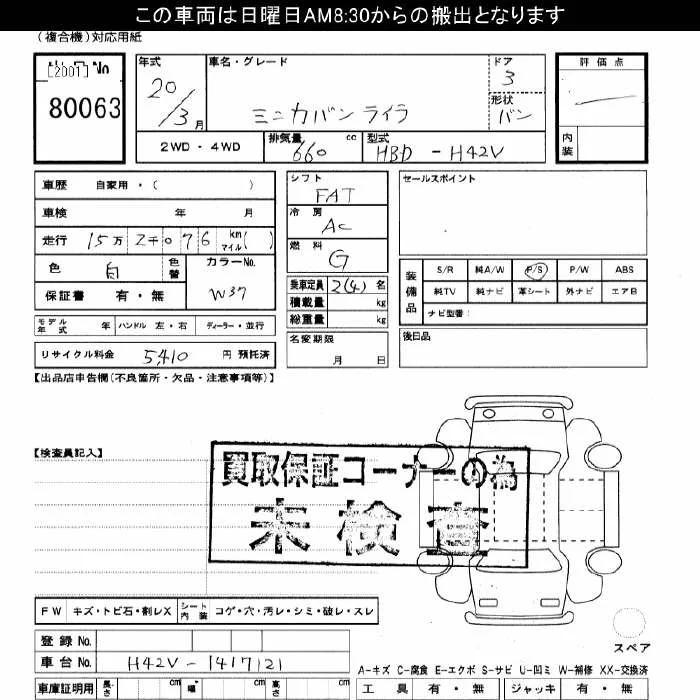 この車両は日曜日AM8:30からの搬出となります
(複合機)対応用紙
[2001] No
80063
年式
20/3月
車名・グレード
ミニカバン ライラ
ドア
3
形状
バン
評価点
内装
2WD・4WD
排気量 660 cc
型式 HBD - H42V
車歴 自家用・( )
車検 年 月
走行 15万2千076 km マイル( )
色 白 色替
カラーNo. W37
保証書 有・無
モデル年式 年 ハンドル 左・右 ディーラー・並行
リサイクル料金 5,410 円 預託済
シフト
FAT
冷房
AC
燃料
G
乗車定員 2(4) 名
積載量 kg
総重量 kg
名変期限
月 日
セールスポイント
装備品
S/R 純A/W P/S P/W ABS
純TV 純ナビ 革シート 外ナビ エアB
ナビ型番：
後日品
【出品店申告欄(不良箇所・欠品・注意事項等)】
【検査員記入】
買取保証コーナーの為
未検査
FW キズ・トビ石・割レX シート内装 コゲ・穴・汚レ・シミ・破レ・スレ
スペア
登録No.
車台No. H42V-1417121
A-キズ C-腐食 E-エクボ S-サビ U-凹ミ W-補修 XX-交換済
車庫証明用 長さ cm 幅 cm 高さ cm
工具 有・無 ジャッキ 有・無